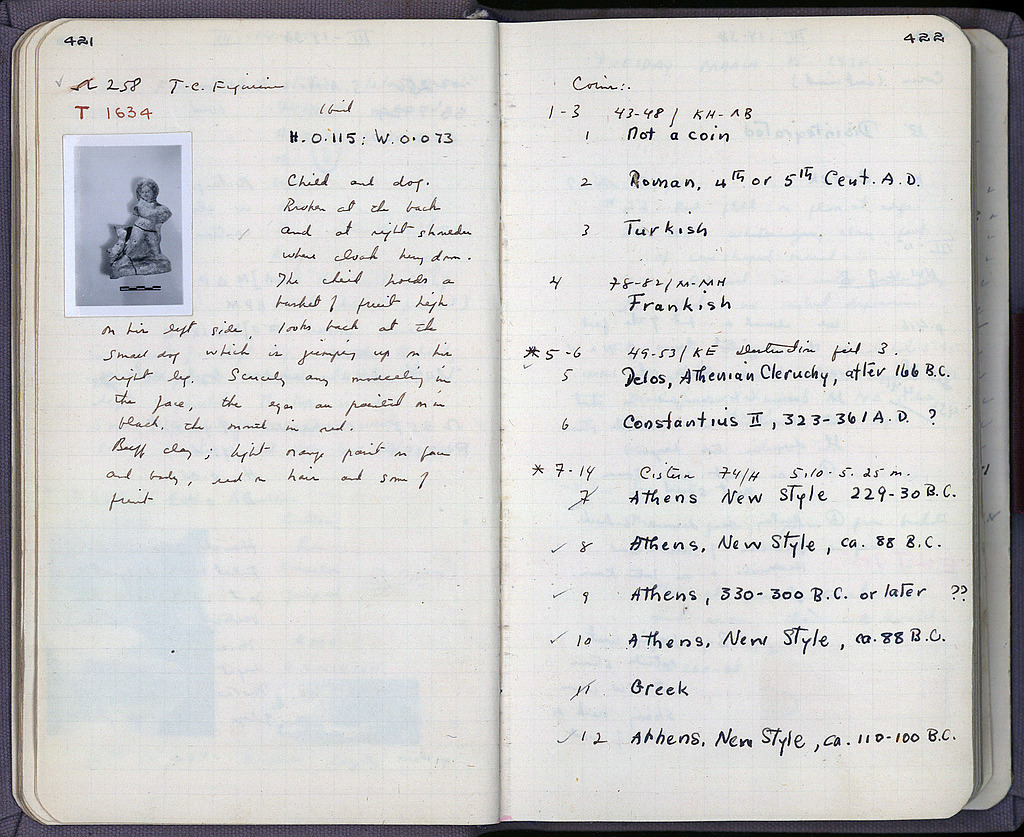 421
258 T-C. Figurine
T 1634
Ibid
H. 0.115; W. 0.073
Child and dog.
Broken at the back
and at right shoulder
where cloak hung down.
The child holds a
basket of fruit high
on his left side, looks back at the
small dog which is jumping up on his
right leg. Scarcely any modelling in
the face, the eyes are painted on in
black, the mouth in red.
Buff clay; light orange paint on face
and body, red on hair and some of
fruit
422
Coins:
1-3 43-48/ KH-ΛB
1 Not a coin
2 Roman, 4th or 5th Cent. A.D.
3 Turkish
4 78-82/M-MH
Frankish
* 5-6 49-53/KE Destruction fill 3.
5 Delos, Athenian Cleruchy, after 166 B.C.
6 Constantius II, 323-361 A.D. ?
* 7-14 Cistern 74/H 5.10-5.25 m.
7 Athens New Style 229-30 B.C.
✓ 8 Athens, New Style, ca. 88 B.C.
✓ 9 Athens, 330-300 B.C. or later ??
✓ 10 Athens, New Style, ca. 88 B.C.
11 Greek
✓ 12 Athens, New Style, ca. 110-100 B.C.